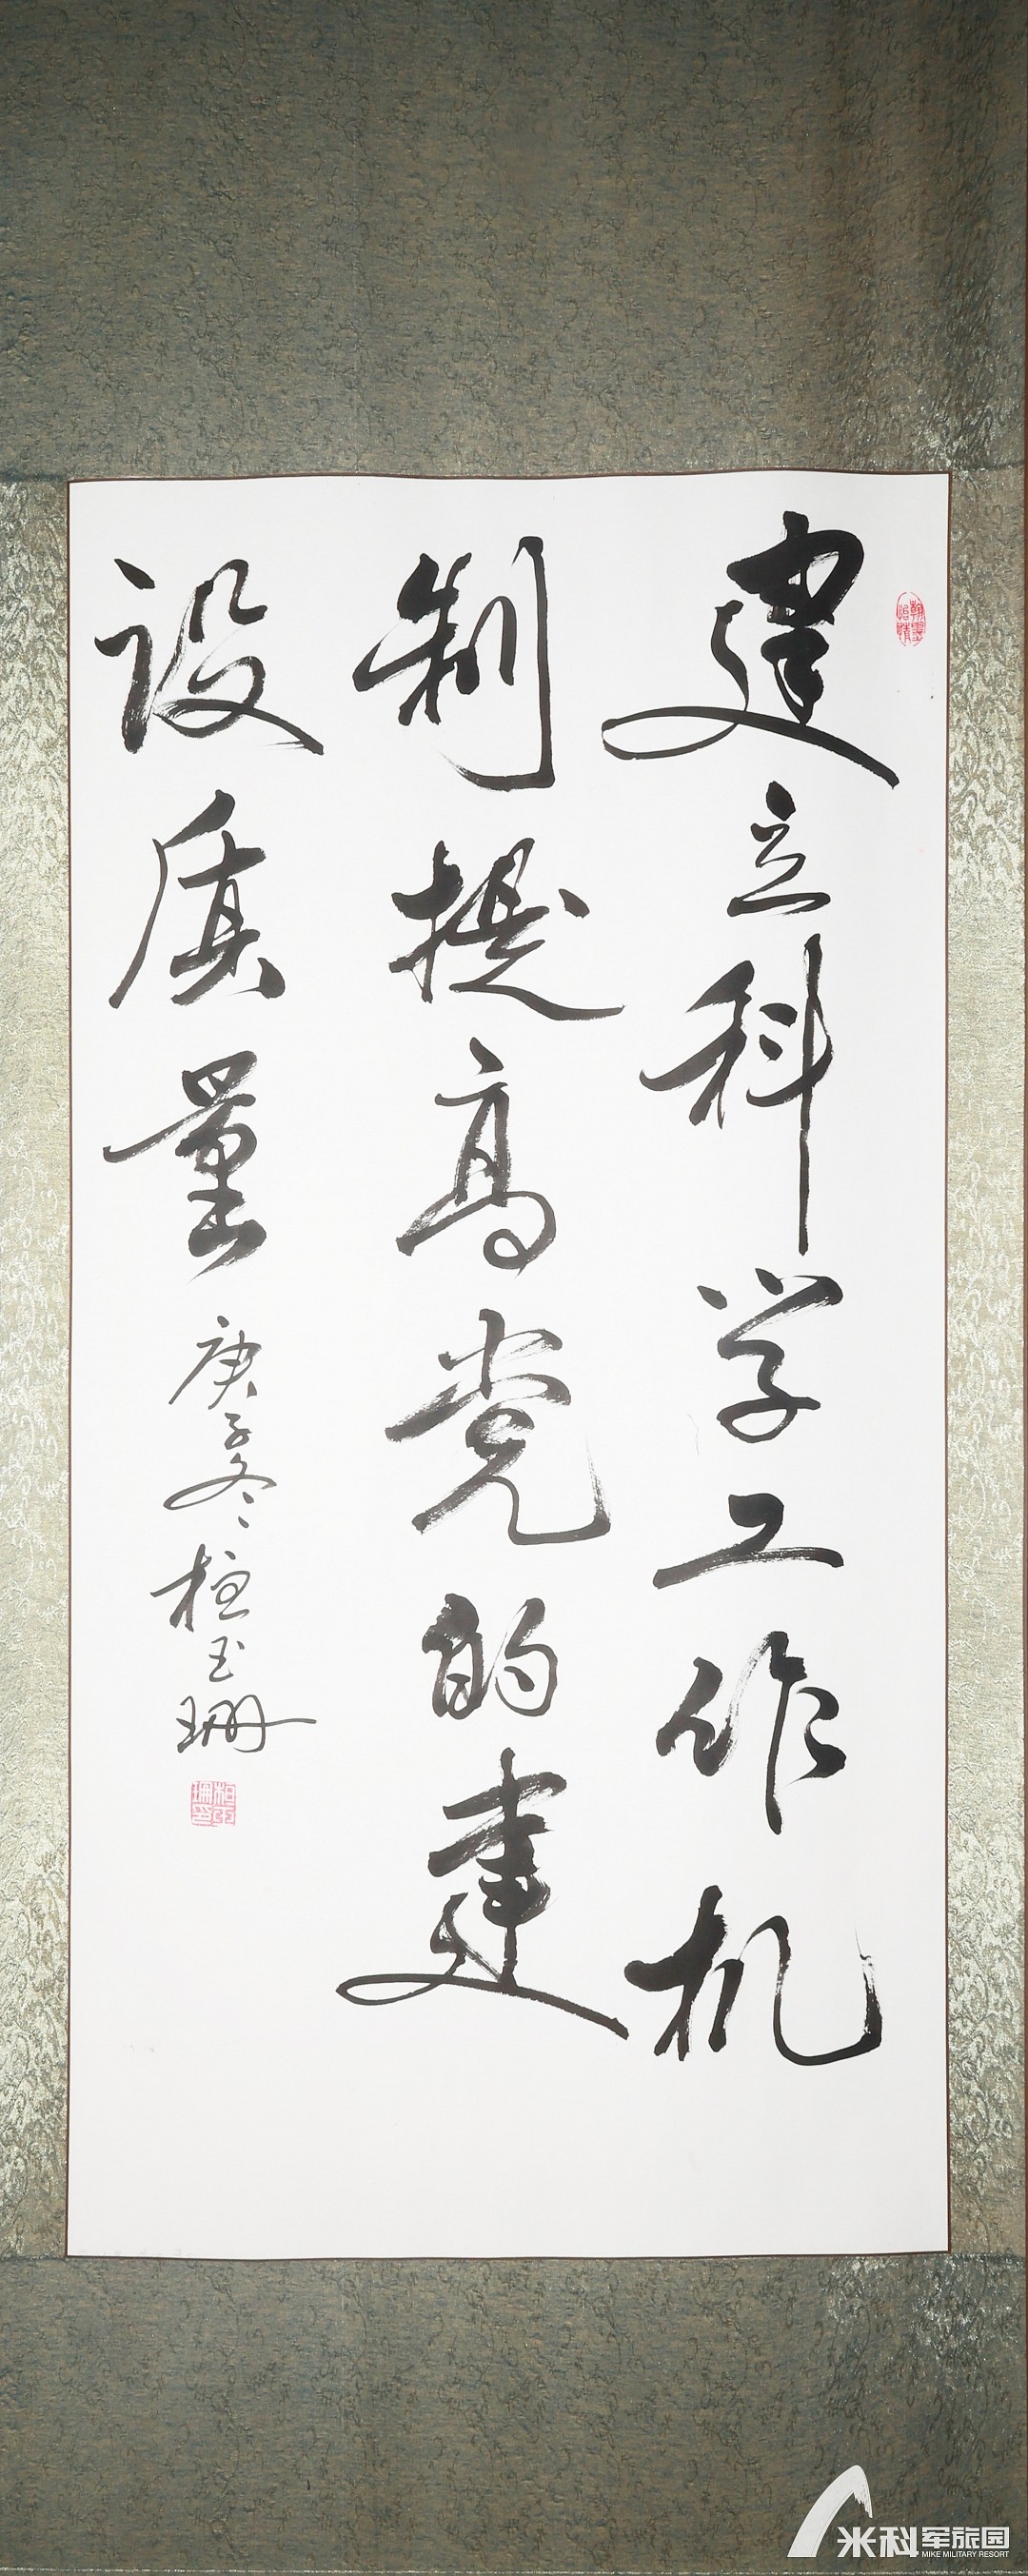 建立科学工作机
制提高党的建
设质量
庚子冬 桓玉珊
翰墨
怡情
米科军旅园
MIKE MILITARY RESORT